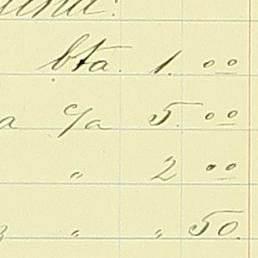 bta. 1. 00
c/a 5. 00
" 2 00
" " 50.